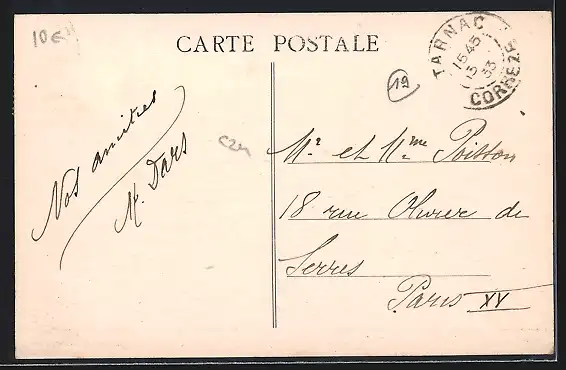 10€
CARTE POSTALE
TARNAC
1545
15
33
CORREZE
19
Nos amitiés
M. Dars
Mr et Mme Poisson
18 rue Olivier de
Serres
Paris XV